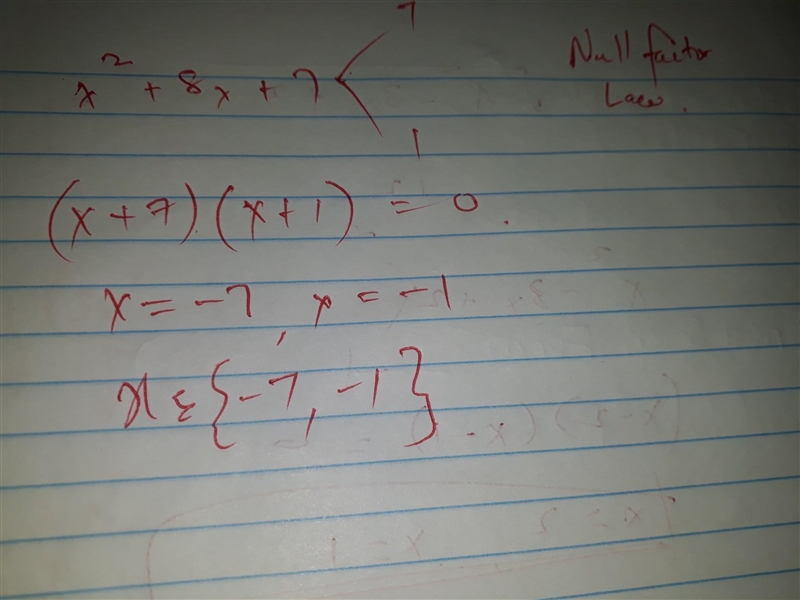 x² + 8x + 7 < 7
1
Null factor
Law.
(x + 7)(x + 1) = 0.
x = -7, x = -1
x ε {-7, -1}.